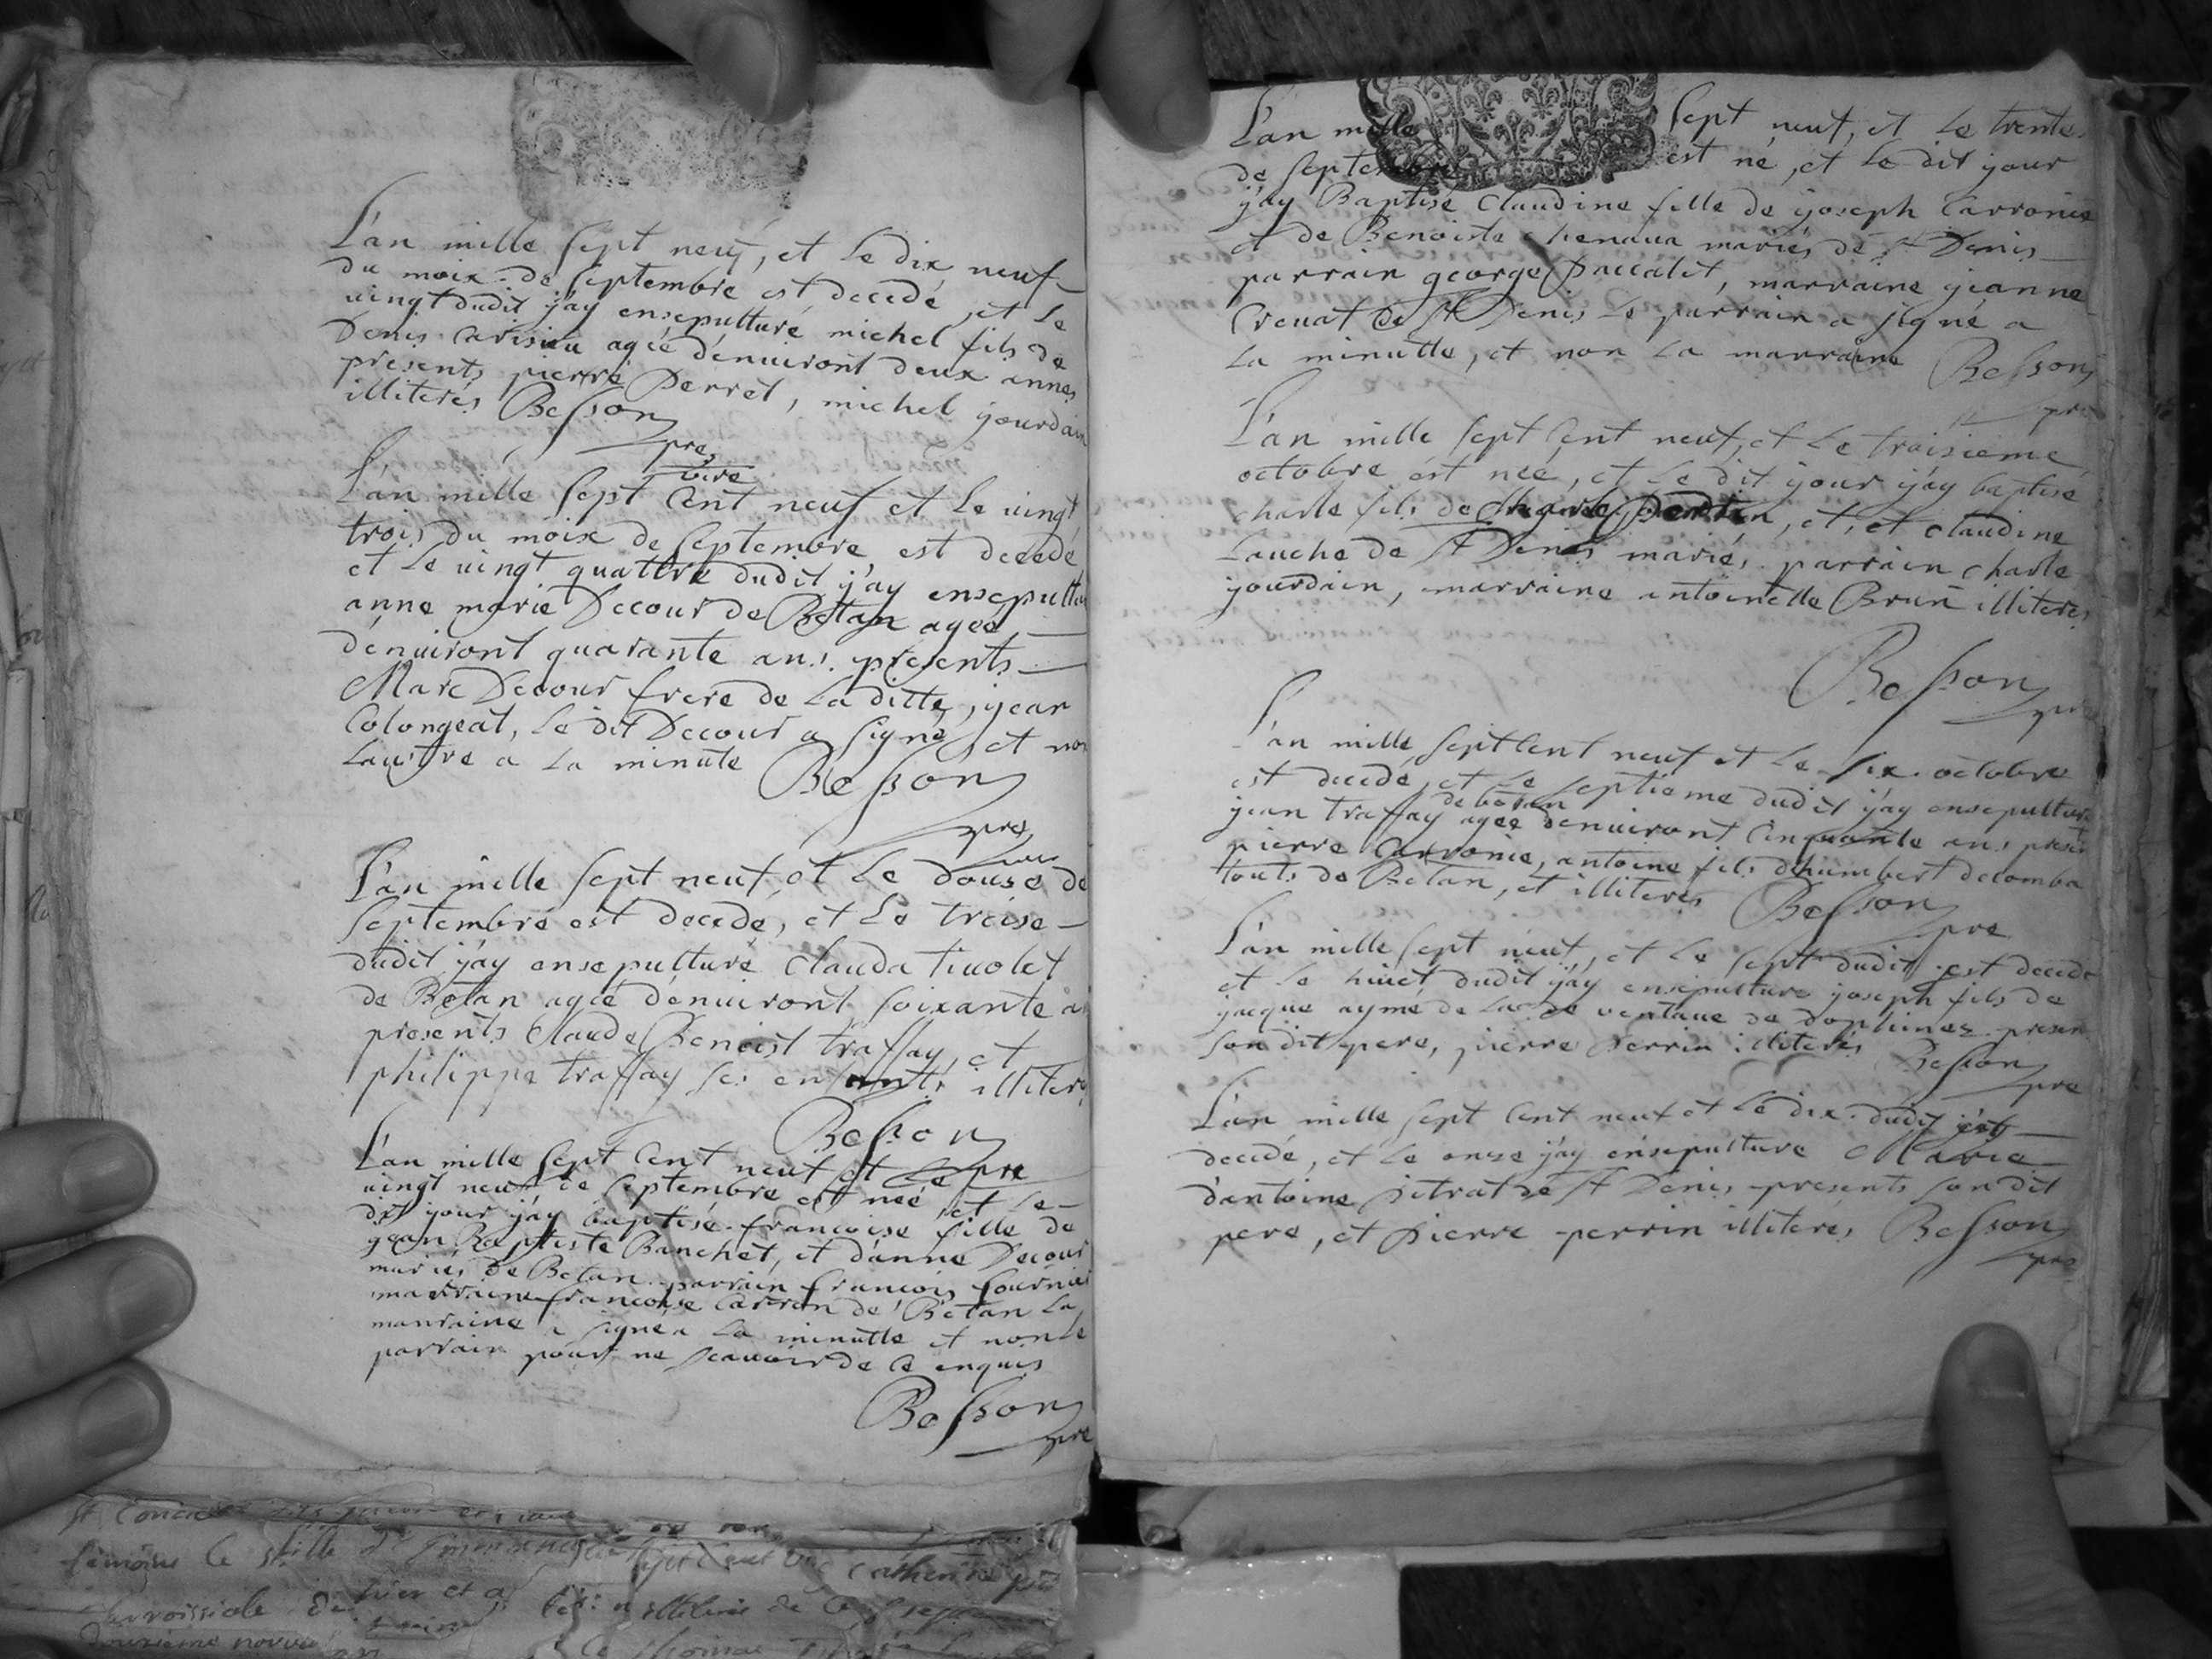 L'an mille sept neuf, et le dix neuf
du moix de septembre est decedé, et le
uingt dudit j'ay ensepulturé michel fils de
Denis Carisiu ageé d'enuiront deux annes
presents pierre Perret, michel jourdain
illiterés Besson
pre
bire
L'an mille sept Cent neuf et le uingt
trois du moix de septembre est decedé
et le uingt quattre dudit j'ay ensepultu
anne marie Decour de Betan ageé
d'enuiront quarante ans presents
Marc Decour frere de la ditte, jean
Colongeat, le dit Decour a signé, et non
lautre a la minute Besson
pre
L'an mille sept neuf, et le douse de
septembre est decedé, et le treise
dudit j'ay ensepulturé Clauda tiuolet
de Betan ageé d'enuiront soixante an
presents Claude Benoist traffay, et
philippe traffay ses enfants illiteré
Besson
pre
L'an mille sept Cent neuf et le
uingt neuf de septembre est neé et le
dit jour j'ay baptisé francoise fille de
jean Baptiste Banchet, et d'anne Decour
mariés de Betan parrain francois fournier
marraine francoise Carron de Betan la
marraine a signé a la minutte et non le
parrain pour ne scauoir de ce enquis
Besson
pre
L'an mille sept neuf, et le trente
de septembre est né, et le dit jour
j'ay Baptisé Claudine fille de joseph Carronie
et de Benoiste chenaua mariés de st Denis
parrain george paccalet, marraine jeanne
Creuat de st Denis le parrain a signé a
la minutte, et non la marraine Besson
pre
L'an mille sept Cent neuf, et le troisieme
octobre est neé, et le dit jour j'ay baptisé
charle fils de Perrin, et, et claudine
Lauche de st Denis mariés parrain charle
jourdain, marraine antoinette Brun illiterés
Besson
pre
L'an mille sept Cent neuf et le six octobre
est decedé, et le septieme dudit j'ay ensepulturé
de betan
jean traffay ageé denuiront Cinquante ans present
pierre Carronie, antoine fils d'humbert decomba
touts de Betan, et illiterés Besson
pre
L'an mille sept neuf, et le sept dudit est decedé
et le huict dudit j'ay ensepulture joseph fils de
jacque aymé de de dophinez presen
son dit pere, pierre perrin illiterés Besson
pre
L'an mille sept Cent neuf et le dix dudit est
decedé, et le onze j'ay ensepulture Marie
d'antoine pitrat de st Denis presents son dit
pere, et pierre perrin illiterés Besson
pre